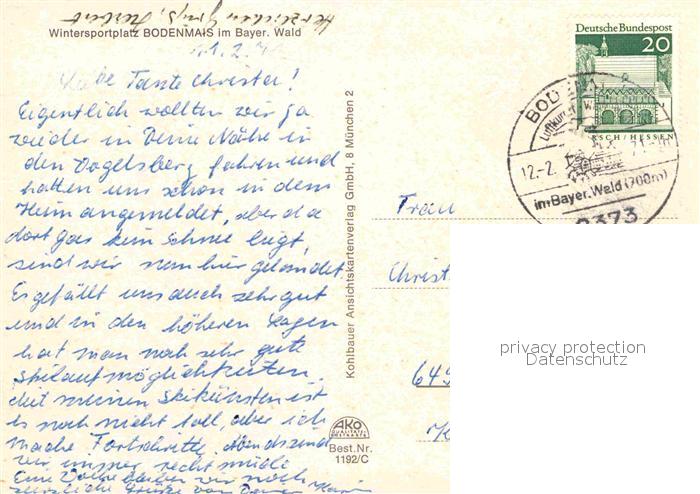 Herzlichen Gruß, Herbert
Wintersportplatz BODENMAIS im Bayer. Wald
Liebe Tante Christel!
Eigentlich wollten wir ja
wieder in Deine Nähe in
den Vogelsberg fahren und
hatten uns schon in dem
Heim angemeldet, aber da
dort gar kein Schnee liegt,
sind wir nun hier gelandet.
Es gefällt uns auch sehr gut
und in den höheren Lagen
hat man noch sehr gute
Skilaufmöglichkeiten.
Mit meinen Skikünsten ist
es noch nicht toll, aber ich
mache Fortschritte. Abends sind
wir immer recht müde.
Eine Woche bleiben wir noch
herzliche Grüße von Deiner
Kohlbauer Ansichtskartenverlag GmbH, 8 München 2
AKO
QUALITÄTS
POSTKARTE
Best.Nr.
1192/C
Deutsche Bundespost
20
LORSCH/HESSEN
BODENMAIS
Luftkurort
12.-2.
im Bayer. Wald (700m)
8373
Frau
Christ
64
privacy protection
Datenschutz